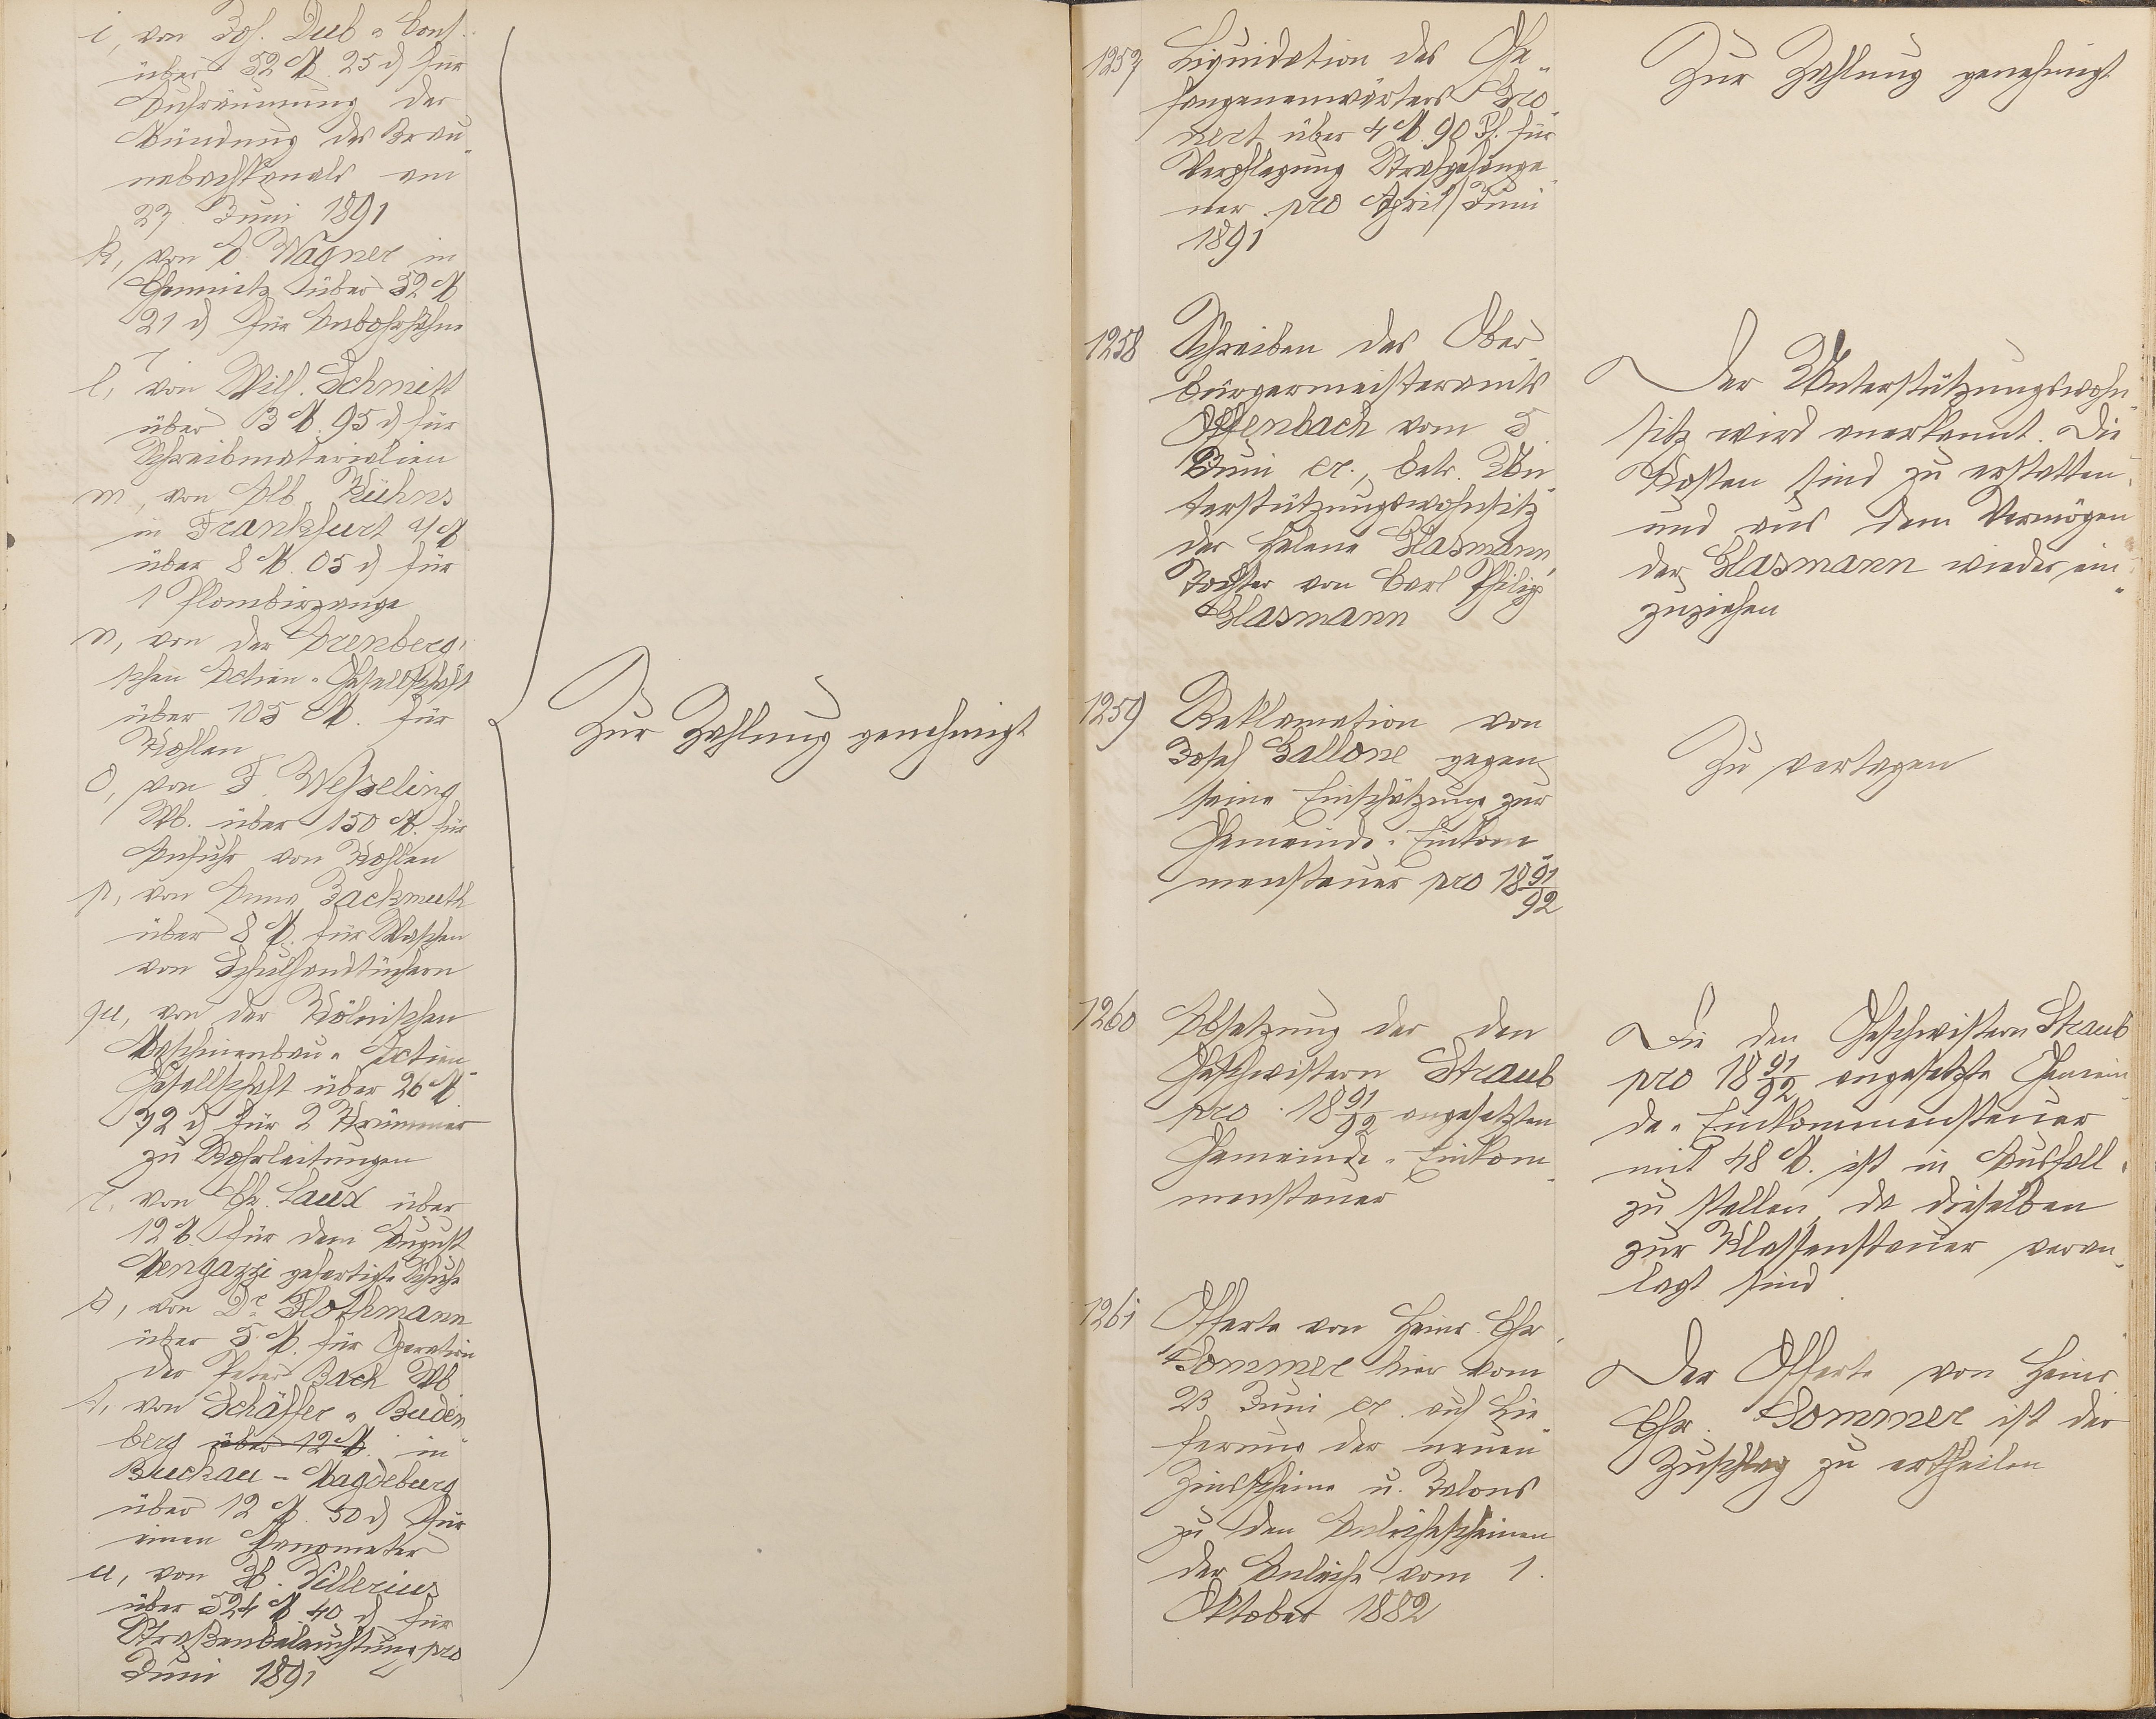 i, von Jos. Dub & Cons.
über 52 M. 25 d für
Aufräumung der
Mündung des Brau-
nebachkanals am
27. Juni 1891
k, von A Wagner in
Chemnitz über 52 M
21 d für Anbohrhähne
l, von Wilh. Schmitt
über 3 M. 95 d für
Schreibmaterialien
m, von Alb. Kühns
in Frankfurt a/M
über 8 M. 05 d für
1 Plombirzange
n, von der Arenberg'
schen Actien-Gesellschaft
über 105 M. für
Kohlen
o, von F. Wesseling
Wb. über 150 M. für
Anfuhr von Kohlen
p, von Anna Backmuth
über 8 M. für Waschen
von Schulhandtüchern
qu, von der Kölnischen
Maschinenbau-Actien-
Gesellschaft über 26 M
72 d für 2 Krümmer
zu Rohrleitungen
r, von Chr. Laux über
12 M. für dem August
Mengazzi gefertigte Schuhe
s, von Dr. Flothmann
über 5 M. für Operation
der Peter Bach Wb
t, von Schäffer & Buden-
berg über 12 M. in
Buckau-Magdeburg
über 12 M. 50 d für
einen Manometer
u, von H. Villerius
über 524 M 40 d für
Straßenbeleuchtung pro
Juni 1891
Zur Zahlung genehmigt
1257 Liquidation des Ge-
fangenenwärters Gro-
nert über 4 M. 90 Pf. für
Verpflegung Strafgefange-
ner pro April/Juni
1891
Zur Zahlung genehmigt
1258 Schreiben des Ober-
bürgermeisteramts
Offenbach vom 5.
Juni cr., betr. Un-
terstützungswohnsitz
der Helene Glasmann,
Tochter von Carl Philip
Glasmann
Der Unterstützungswohn-
sitz wird anerkannt. Die
Kosten sind zu erstatten
und aus dem Vermögen
der Glasmann wieder ein-
zuziehen
1259 Reklamation von
Josef Gallone gegen
seine Einschätzung zur
Gemeinde-Einkom-
mensteuer pro 1891/92
Zu vertagen
1260 Absetzung der den
Geschwistern Straub
pro 1891/92 angesetzten
Gemeinde-Einkom-
mensteuer
Die den Geschwistern Straub
pro 1891/92 angesetzte Gemein-
de-Einkommensteuer
mit 48 M. ist in Ausfall
zu stellen, da dieselben
zur Klassensteuer veran-
lagt sind
1261 Offerte von Heinr. Chr.
Sommer hier vom
23 Juni cr. auf Lie-
ferung der neuen
Zinsscheine u. Talons
zu den Anleihescheinen
der Anleihe vom 1.
Oktober 1882
Der Offerte von Heinr.
Chr. Sommer ist der
Zuschlag zu ertheilen